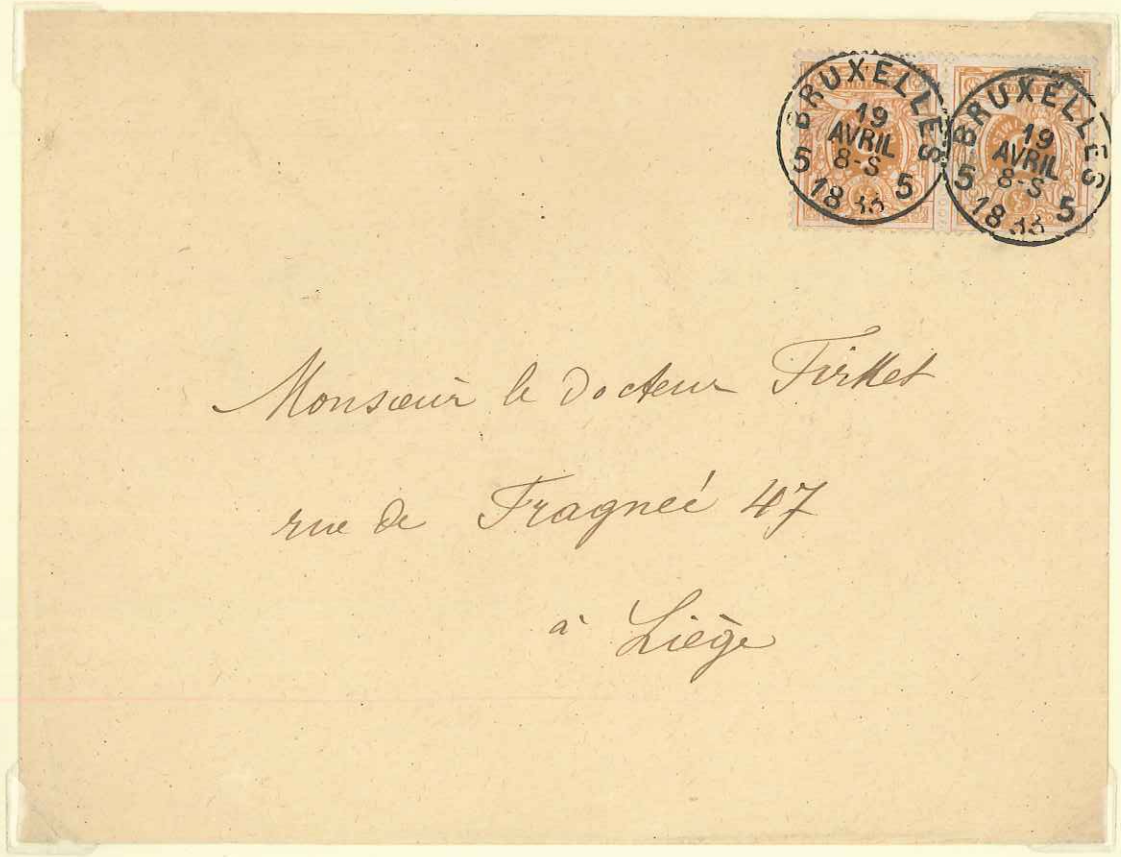 BRUXELLES
19
AVRIL
8-S
5 18 5
BRUXELLES
19
AVRIL
8-S
5 18 33 5
Monsieur le Docteur Firket
rue de Fragneé 47
à Liège